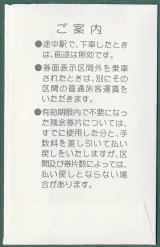 ご案内
●途中駅で、下車したとき
は、前途は無効です。
●券面表示区間外を乗車
されたときは、別にその
区間の普通旅客運賃を
いただきます。
●有効期限内で不要になっ
た残余券片については、
すでに使用した分と、手
数料を差し引いて払い
戻しをいたしますが、区
間及び券片数によっては、
払い戻しとならない場
合があります。